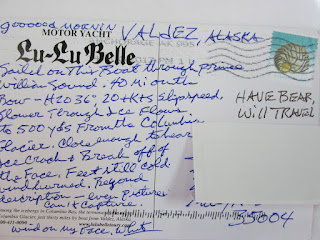 goooood mornin VALDEZ, ALASKA
MOTOR YACHT
Lu-Lu Belle
Sailed on this Boat through prince
William Sound. 40 mi outh
Bow - H2O 36°, 20+Kts slip speed,
Slower Through Ice Flows
to 500 yds From the Columbia
Glacier. Close enough to hear
Ice Crack & Break off of
the Face. Feet still cold
wind burned. Beyond
description - even Pictures
Can't Capture.
wind on my Face, what
HAVE BEAR,
Will TRAVEL
55604